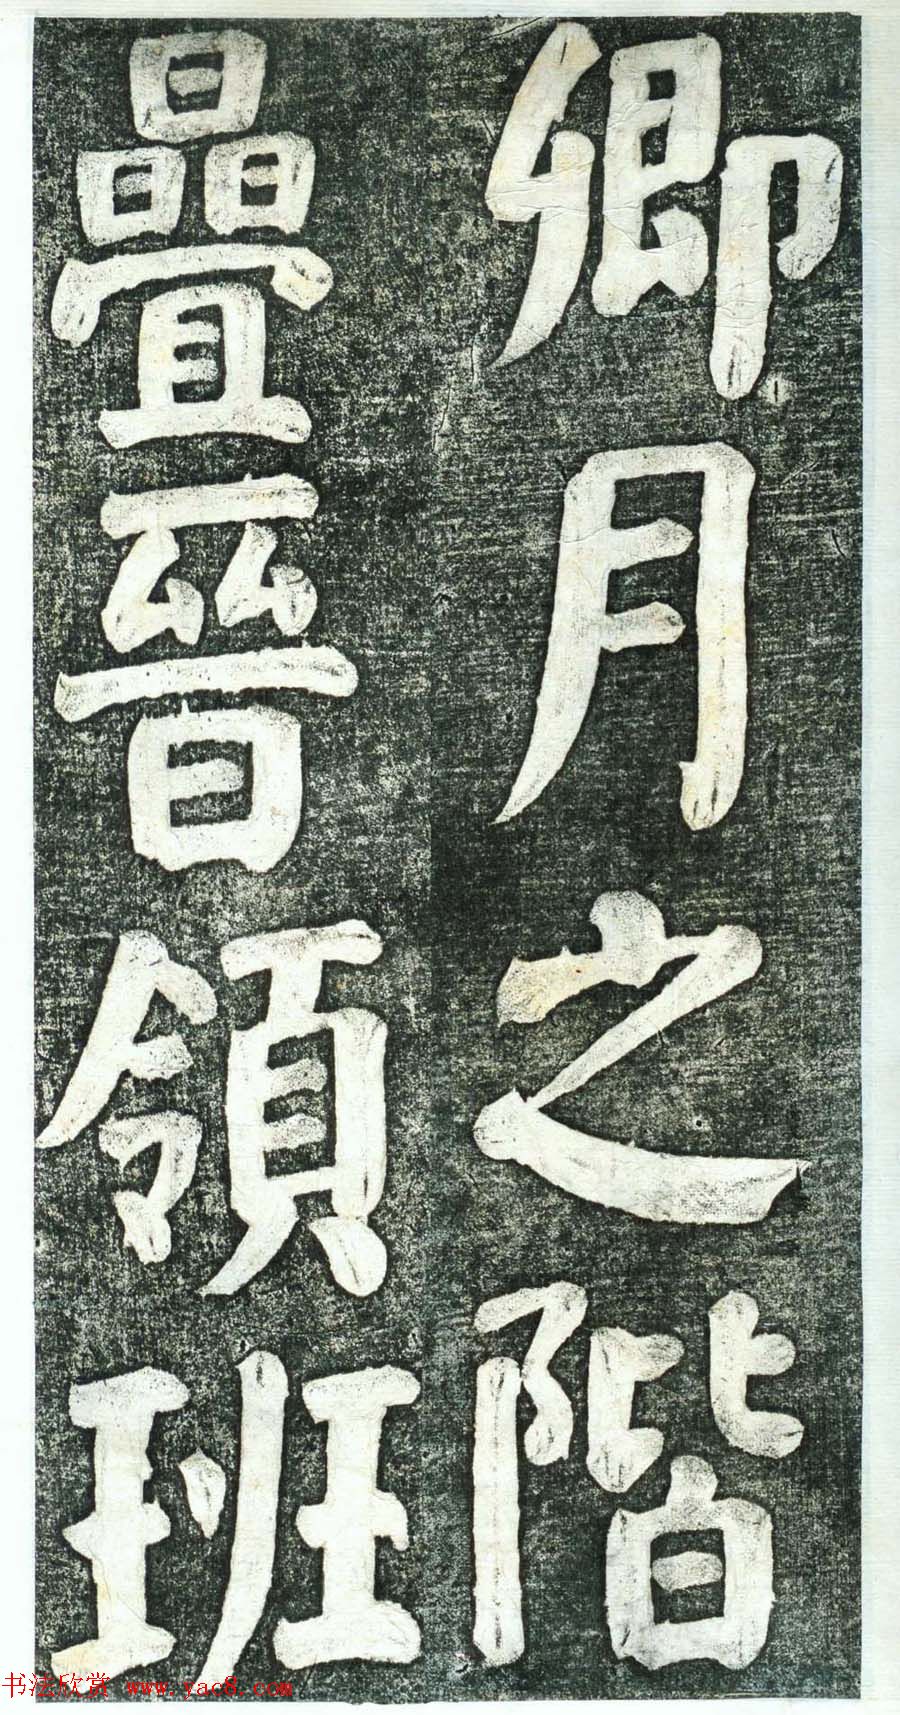 卿月之階
疊晉領班
书法欣赏 www.yac8.com